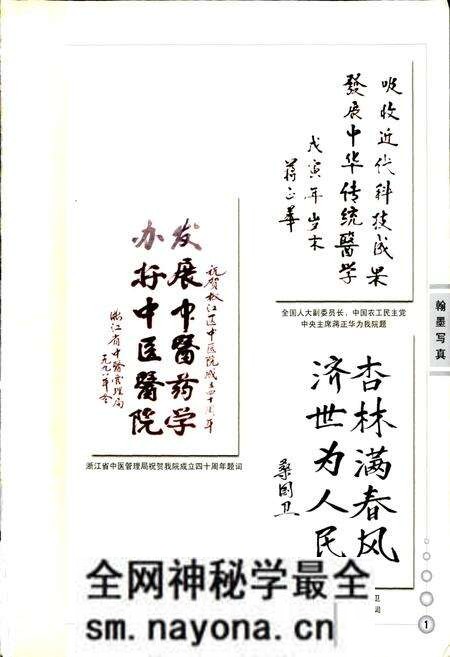 吸收近代科技成果
發展中华传统醫学
戊寅年岁末
蒋正華
全国人大副委员长、中国农工民主党
中央主席蒋正华为我院题
发展中醫药学
办好中医醫院
浙江省中醫管理局
一九九八年冬
浙江省中医管理局祝贺我院成立四十周年题词
杏林满春风
济世为人民
桑国卫
翰墨写真
1
全网神秘学最全
sm.nayona.cn